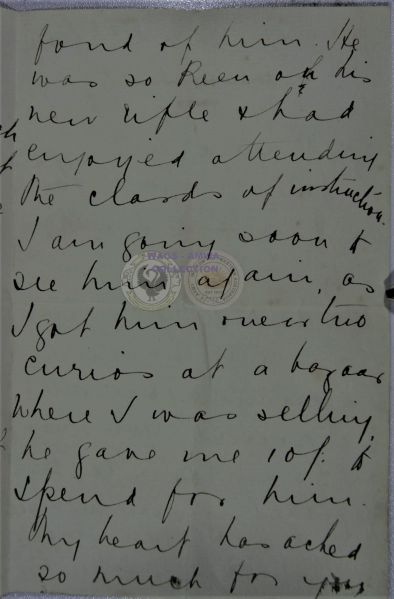 fond of him. He
was so keen on his
new rifle & had
enjoyed attending
the class of instruction.
I am going soon to
see him again, as
I got him one or two
curios at a bazaar
where I was selling,
he gave me 10/- to
spend for him.
My heart has ached
so much for you
WAGS - AMMA
COLLECTION